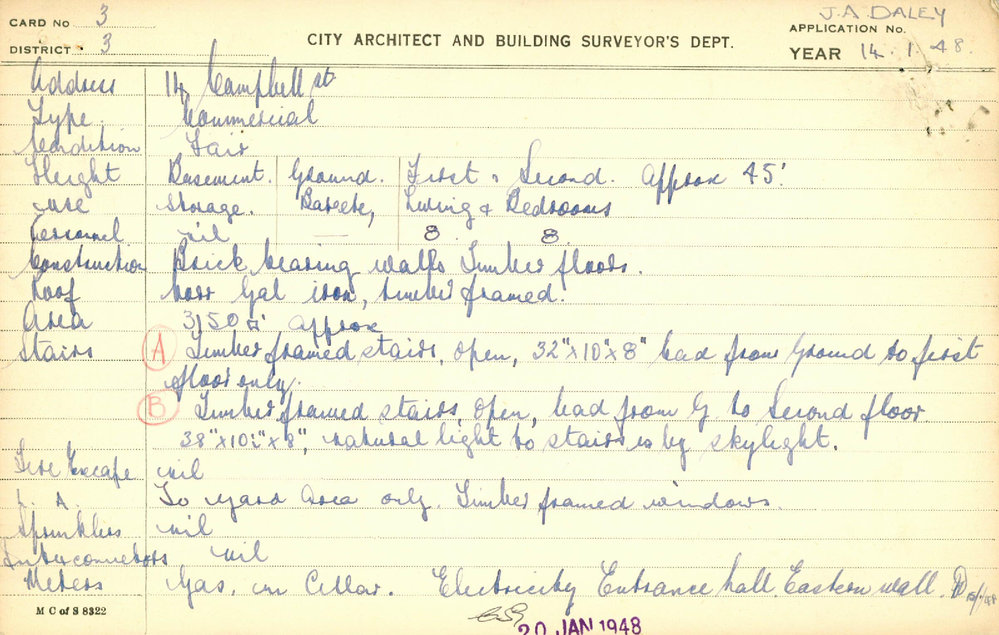 CARD No 3
J.A. DALEY
APPLICATION No.
DISTRICT 3
CITY ARCHITECT AND BUILDING SURVEYOR'S DEPT.
YEAR 14.1.48.
Address 14 Campbell st
Type Commercial
Condition Fair
Height Basement. Ground. First & Second. Approx 45'.
use Storage. Living & Bedrooms
Personnel nil — 8 8
Construction Brick bearing walls Timber floors.
Roof Corr Gal iron, timber framed.
Area 3150 □' approx
Stairs (A) Timber framed stairs, open, 32"x10"x8" lead from Ground to first
floor only.
(B) Timber framed stairs, open, lead from G to Second floor
38"x10½"x8", natural light to stairs is by skylight.
Fire Escape nil
L. A. To yard area only. Timber framed windows.
Sprinklers nil
Interconnectors nil
Meters Gas, in Cellar. Electricity Entrance hall. Eastern wall.
M C of S 8322
20 JAN 1948